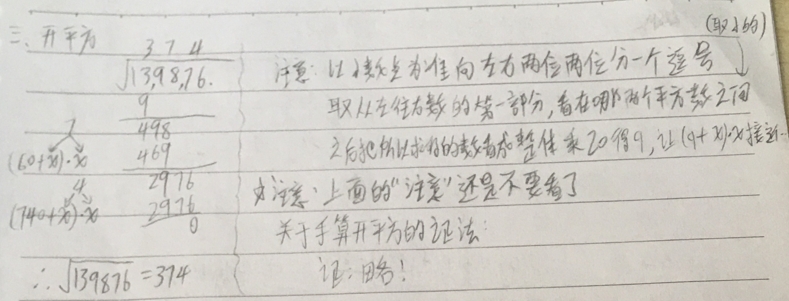 三、开平方
3 7 4
√13,98,76.
9
498
7
(60+x)·x
469
2976
4
(740+x)·x
2976
0
∴√139876=374
(取小的)
注意:以小数点为准向左右两位两位分一个逗号
取从左往右数的第一部分,看在哪两个平方数之间
之后把所以求得的数看成整体乘20得9,让(9+x)·x接近…
注意:上面的“注意”还是不要看了
关于手算开平方的证法:
证:略!